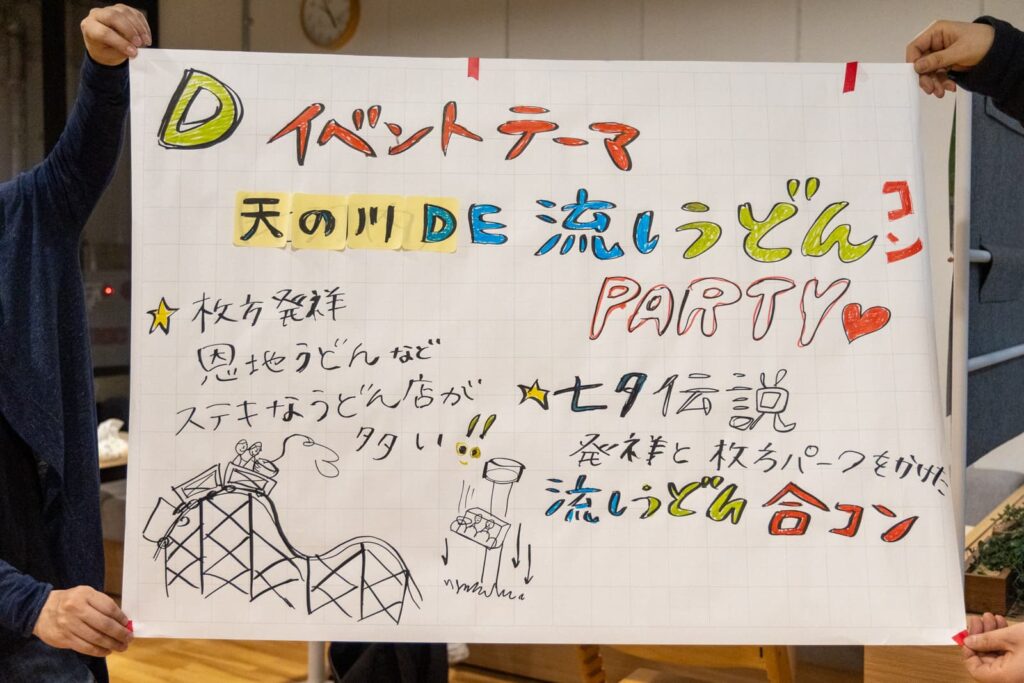 D イベントテーマ
天の川DE 流しうどんコン
PARTY
枚方発祥
恩地うどんなど
ステキなうどん店が
多い!!
七夕伝説
発祥と枚方パークをかけた
流しうどん合コン